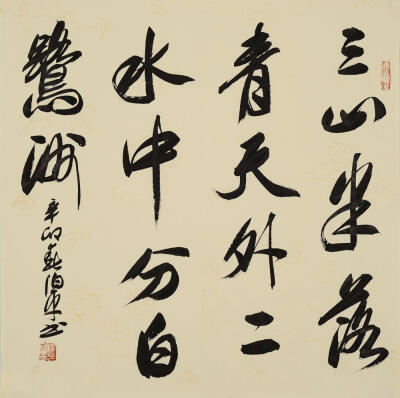 三山半落
青天外二
水中分白
鹭洲
辛卯
书